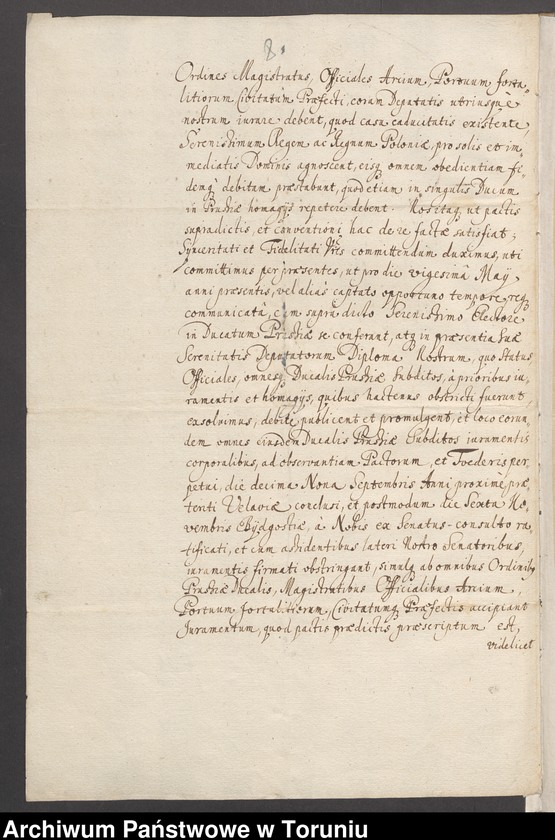 8.
Ordines Magistratus, Officiales Arcium, Portuum forta-
litiorum Civitatum Præfecti, coram Deputatis utriusque
nostrum iurare debent, quod casu caducitatis existente,
Serenissimum Regem ac Regnum Poloniæ, pro solis et im-
mediatis Dominis agnoscent, eisq omnem obedientiam fi-
demq debitam præstabunt, quod etiam in singulis Ducum
in Prussiæ homagijs repetere debent. Nos itaq ut pactis
supradictis, et conventioni hac de re factæ satisfiat;
Synceritati et Fidelitati Vris committendum duximus, uti
committimus per præsentes, ut pro die vigesima Maij
anni præsentis, vel alias captato opportuno tempore, req
communicatâ, cum supra dicto Serenissimo Electore
in Ducatum Prussiæ se conferant, atq in præsentia suæ
Serenitatis Deputatorum Diploma Nostrum, quo Status
Officiales, omnesq Ducalis Prussiæ Subditos, à prioribus iu-
ramentis et homagijs, quibus hactenus obstricti fuerunt
exsolvimus, debite publicent et promulgent, et loco eorun-
dem omnes eiusdem Ducalis Prussiæ Subditos iuramentis
corporalibus, ad observantiam Pactorum, et Foederis per-
petui, die decima Nona Septembris Anni proxime præ-
teriti Velaviæ conclusi, et postmodum die Sexta No-
vembris Bydgostiæ, à Nobis ex Senatus-consulto ra-
tificati, et cum assidentibus lateri Nostro Senatoribus,
iuramentis firmati obstringant, simulq ab omnibus Ordinibq
Prussiæ Ducalis, Magistratibus Officialibus Arcium,
Portuum fortalitiorum, Civitatumq Præfectis accipiant
Iuramentum, quod pactis prædictis præscriptum est,
videlicet
Archiwum Państwowe w Toruniu